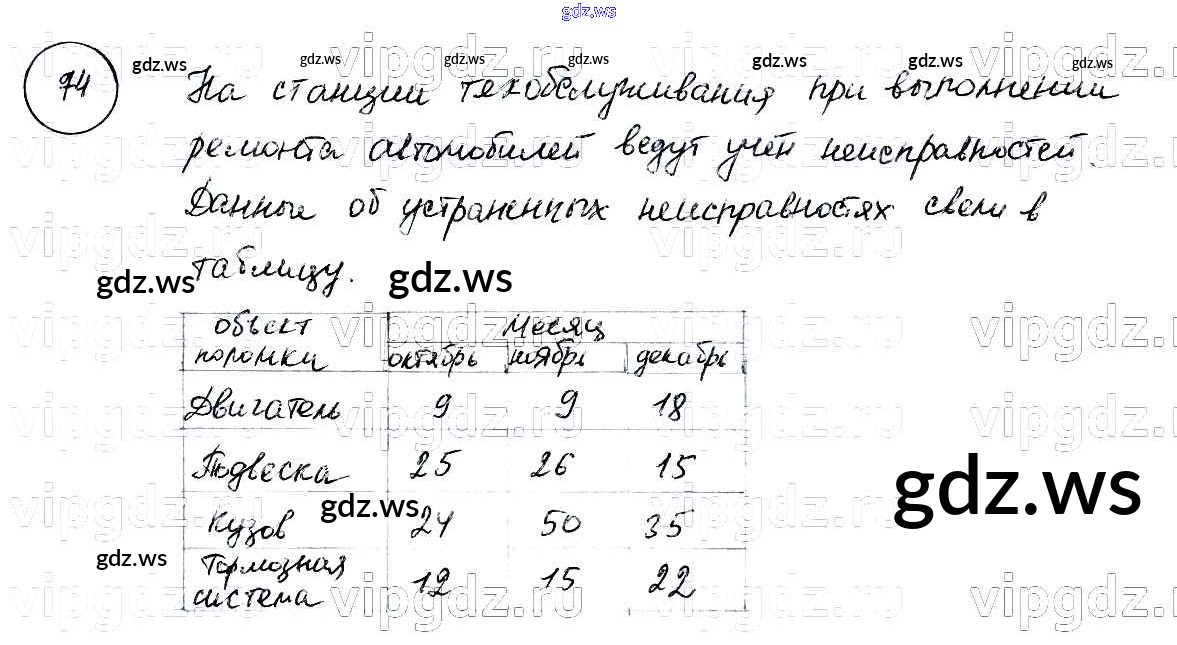 gdz.ws
74
На станции техобслуживания при выполнении
ремонта автомобилей ведут учёт неисправностей.
Данные об устраненных неисправностях свели в
таблицу.
объект поломки Месяц
октябрь ноябрь декабрь
Двигатель 9 9 18
Подвеска 25 26 15
Кузов 24 50 35
Тормозная система 12 15 22
gdz.ws
vipgdz.ru